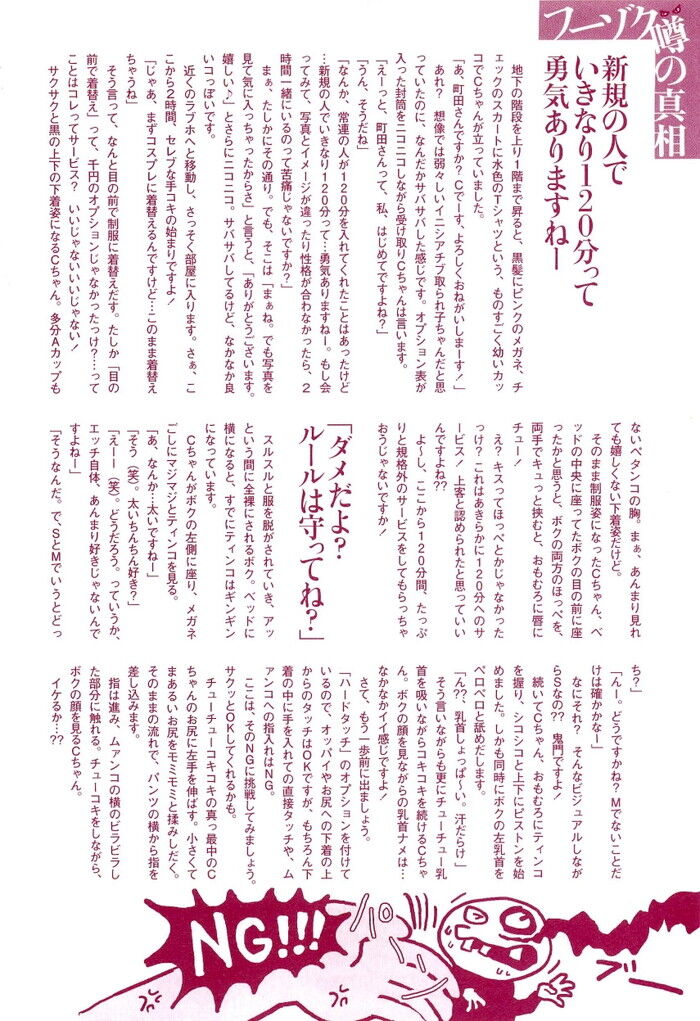 フーゾク噂の真相
新規の人で
いきなり120分って
勇気ありますねー
地下の階段を上り1階まで昇ると、黒髪にピンクのメガネ、チ
ェックのスカートに水色のTシャツという、ものすごく幼いカッ
コでCちゃんが立っていました。
「あ、町田さんですか？Cでーす、よろしくおねがいしまーす！」
あれ？　想像では弱々しいイニシアチブ取られ子ちゃんだと思
っていたのに、なんだかサバサバした感じです。オプション表が
入った封筒をニコニコしながら受け取りCちゃんは言います。
「えーっと、町田さんって、私、はじめてですよね？」
「うん、そうだね」
「なんか、常連の人が120分を入れてくれたことはあったけど
…新規の人でいきなり120分って…勇気ありますねー。もし会
ってみて、写真とイメージが違ったり性格が合わなかったら、2
時間一緒にいるのって苦痛じゃないですか？」
まぁ、たしかにその通り。でも、そこは「まぁね。でも写真を
見て気に入っちゃったからさ」と言うと、「ありがとうございます。
嬉しい♪」とさらにニコニコ。サバサバしてるけど、なかなか良
いコっぽいです。
近くのラブホへと移動し、さっそく部屋に入ります。さぁ、こ
こから2時間、セレブな手コキの始まりですよ！
「じゃあ、まずコスプレに着替えるんですけど…このまま着替え
ちゃうね」
そう言って、なんと目の前で制服に着替えだす。たしか「目の
前で着替え」って、千円のオプションじゃなかったっけ？…って
ことはコレってサービス？　いいじゃないいいじゃない！
サクサクと黒の上下の下着姿になるCちゃん。多分Aカップも
ないペタンコの胸。まぁ、あんまり見れ
ても嬉しくない下着姿だけど。
そのまま制服姿になったCちゃん、ベ
ッドの中央に座ってたボクの目の前に座
ったかと思うと、ボクの両方のほっぺを、
両手でキュっと挟むと、おもむろに唇に
チュー！
え？キスってほっぺとかじゃなかった
っけ？これはあきらかに120分へのサ
ービス！上客と認められたと思っていい
んですよね？？
よ～し、ここから120分間、たっぷ
りと規格外のサービスをしてもらっちゃ
おうじゃないですか！
「ダメだよ？
ルールは守ってね？」
スルスルと服を脱がされていき、アッ
という間に全裸にされるボク。ベッドに
横になると、すでにティンコはギンギン
になっています。
Cちゃんがボクの左側に座り、メガネ
ごしにマジマジとティンコを見る。
「あ、なんか…太いですねー」
「そう（笑）。太いちんちん好き？」
「えー！（笑）。どうだろう。っていうか、
エッチ自体、あんまり好きじゃないんで
すよねー」
「そうなんだ。で、SとMでいうとどっ
ち？」
「んー。どうですかね？Mでないことだ
けは確かかなー」
なにそれ？　そんなビジュアルしなが
らSなの？？　鬼門ですよ！
続いてCちゃん、おもむろにティンコ
を握り、シコシコと上下にピストンを始
めました。しかも同時にボクの左乳首を
ペロペロと舐めだします。
「ん？？、乳首しょっぱ～い。汗だらけ」
そう言いながらも更にチューチュー乳
首を吸いながらコキコキを続けるCちゃ
ん。ボクの顔を見ながらの乳首ナメは…
なかなかイイ感じですよ！
さて、もう一歩前に出ましょう。
「ハードタッチ」のオプションを付けて
いるので、オッパイやお尻への下着の上
からのタッチはOKですが、もちろん下
着の中に手を入れての直接タッチや、ム
ァンコへの指入れはNG。
ここは、そのNGに挑戦してみましょう。
サクッとOKしてくれるかも。
チューチューコキコキの真っ最中のC
ちゃんのお尻に左手を伸ばす。小さくて
まあるいお尻をモミモミと揉みしだく。
そのままの流れで、パンツの横から指を
差し込みます。
指は進み、ムァンコの横のビラビラし
た部分に触れる。チューコキをしながら、
ボクの顔を見るCちゃん。
イケるか…？？
NG!!!
ブーーー